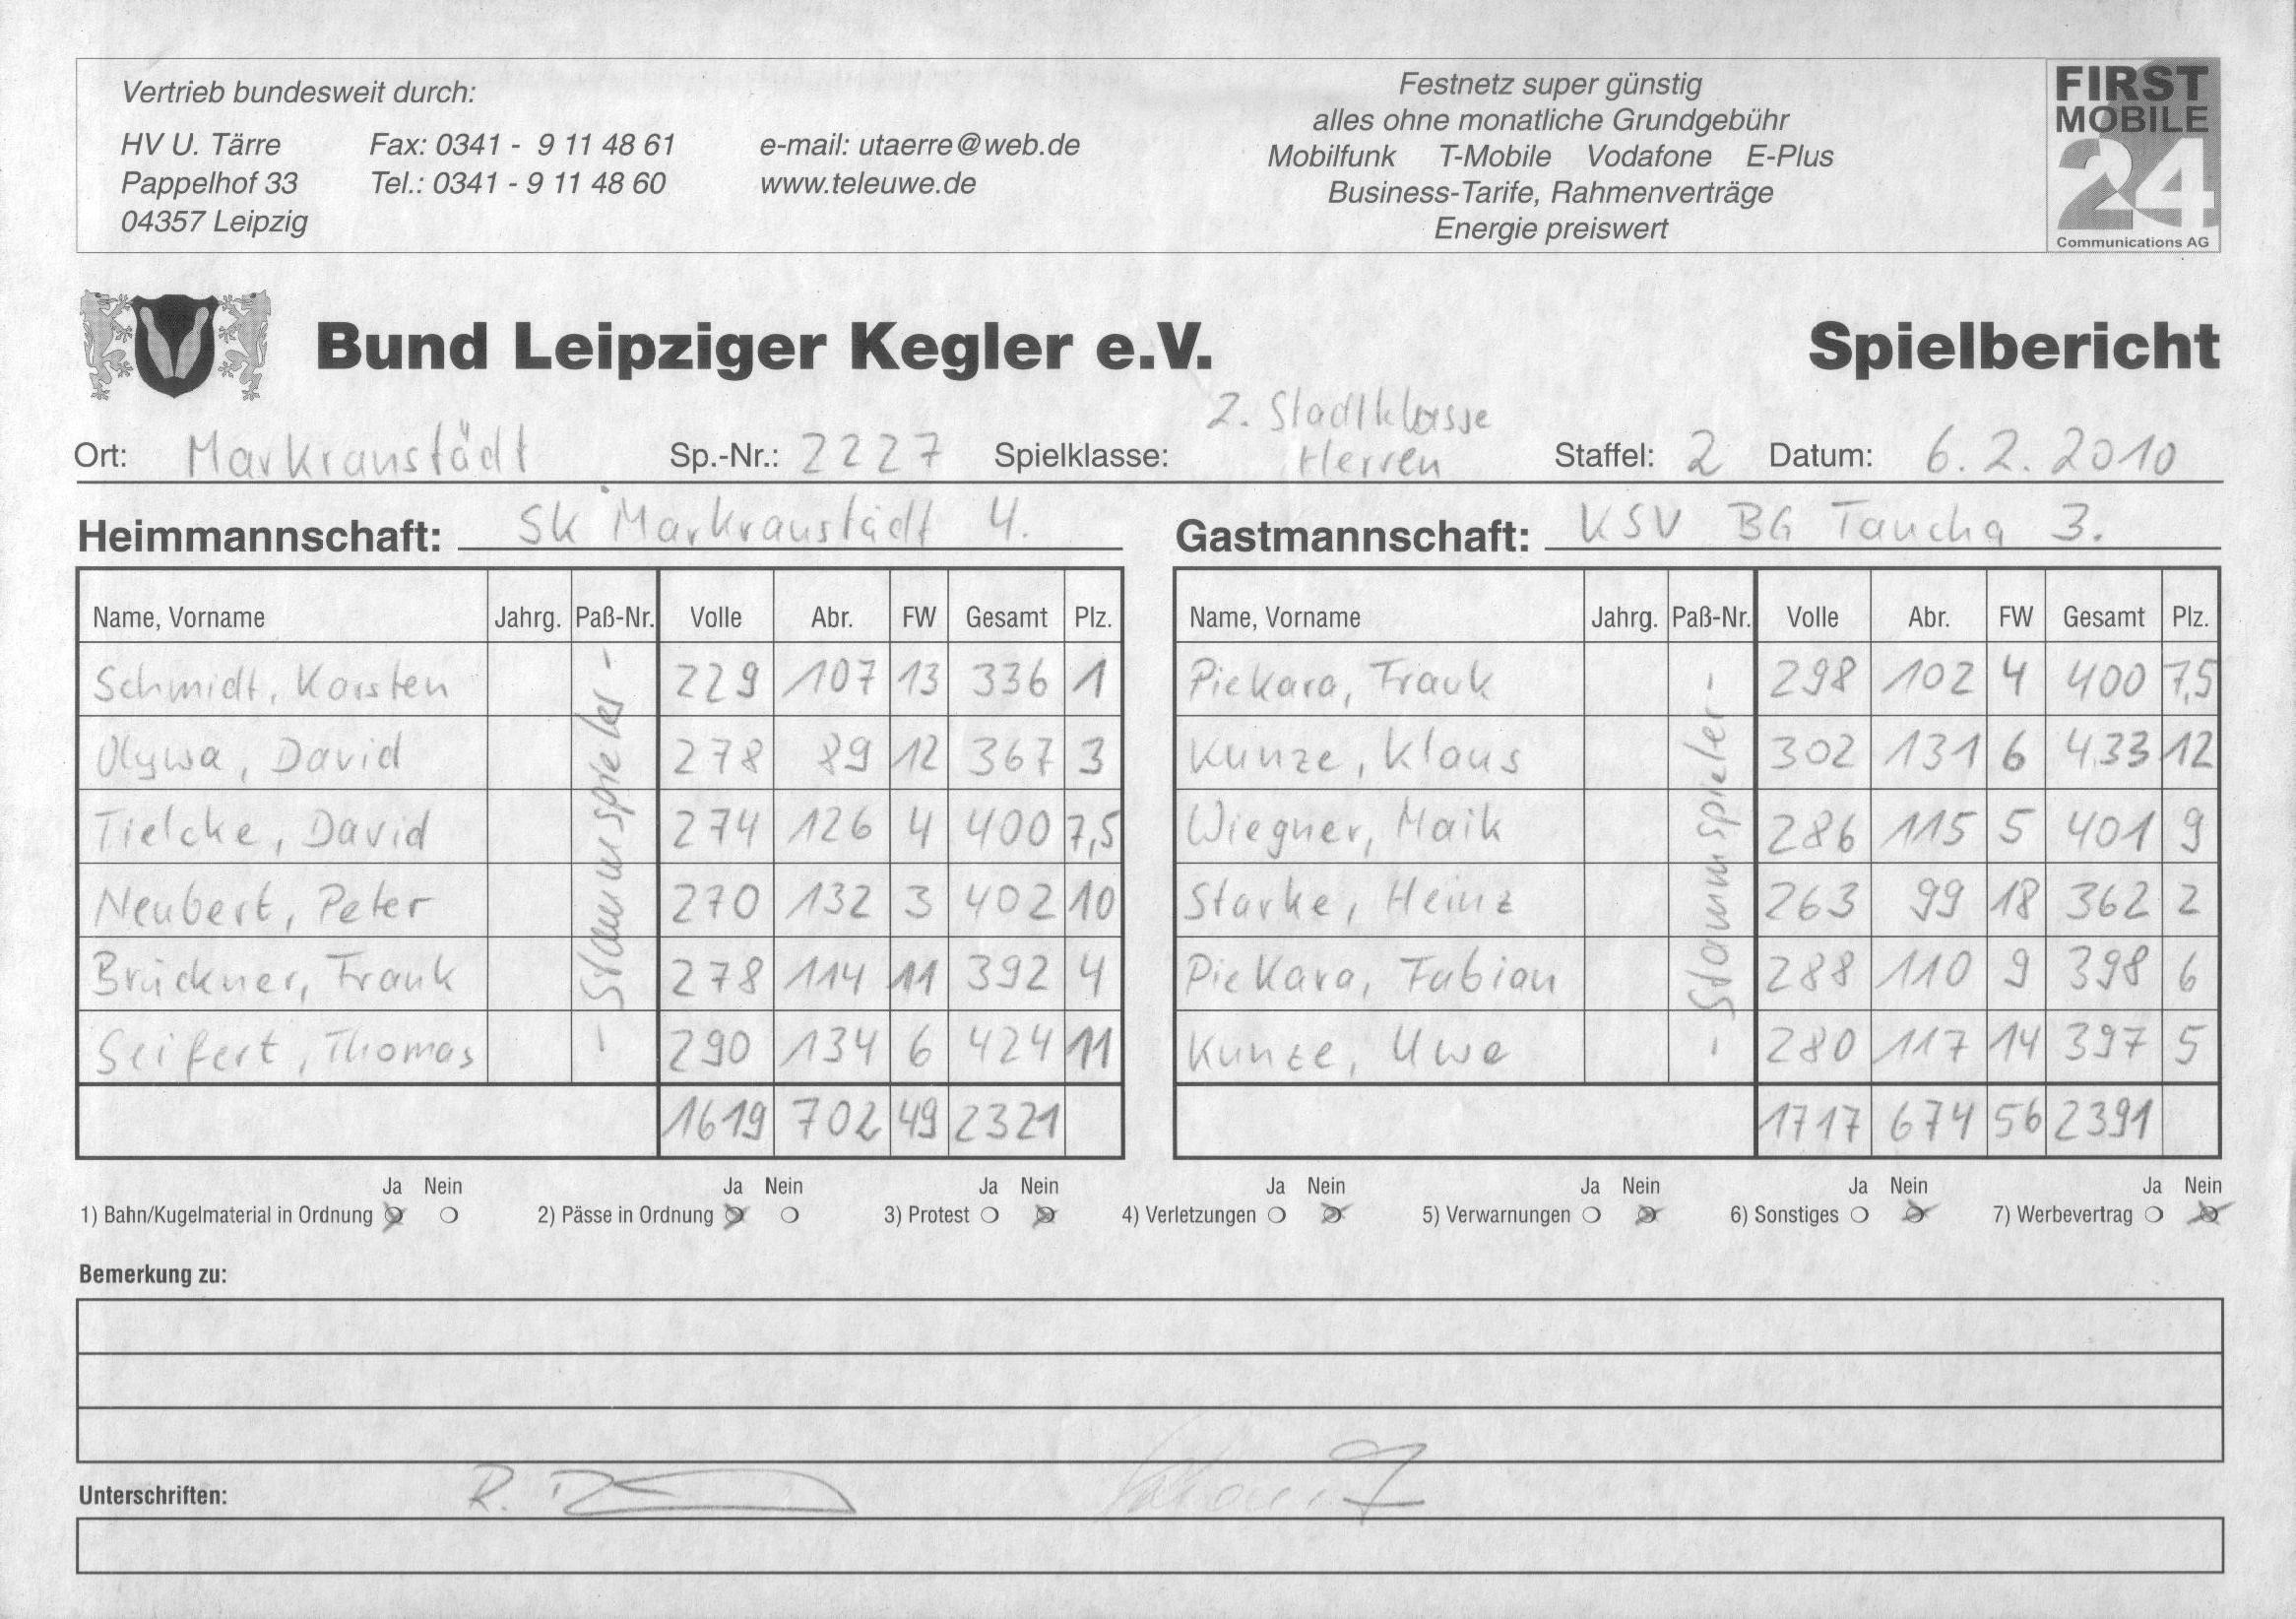 Vertrieb bundesweit durch:
HV U. Tärre Fax: 0341 - 9 11 48 61 e-mail: utaerre@web.de
Pappelhof 33 Tel.: 0341 - 9 11 48 60 www.teleuwe.de
04357 Leipzig
Festnetz super günstig
alles ohne monatliche Grundgebühr
Mobilfunk T-Mobile Vodafone E-Plus
Business-Tarife, Rahmenverträge
Energie preiswert
FIRST
MOBILE
24
Communications AG
Bund Leipziger Kegler e.V. Spielbericht
Ort: Markranstädt Sp.-Nr.: 2227 Spielklasse: 2. Stadtklasse Herren Staffel: 2 Datum: 6.2.2010
Heimmannschaft: SK Markranstädt 4.
Name, Vorname Jahrg. Paß-Nr. Volle Abr. FW Gesamt Plz.
Schmidt, Karsten 229 107 13 336 1
Olywa, David 278 89 12 367 3
Tielcke, David 274 126 4 400 7,5
Neubert, Peter 270 132 3 402 10
Brückner, Frank 278 114 11 392 4
Seifert, Thomas 290 134 6 424 11
- Stammspieler -
1619 702 49 2321
Gastmannschaft: KSV BG Taucha 3.
Name, Vorname Jahrg. Paß-Nr. Volle Abr. FW Gesamt Plz.
Piekara, Frank 298 102 4 400 7,5
Kunze, Klaus 302 131 6 433 12
Wiegner, Maik 286 115 5 401 9
Starke, Heinz 263 99 18 362 2
Piekara, Fabian 288 110 9 398 6
Kunze, Uwe 280 117 14 397 5
- Stammspieler -
1717 674 56 2391
Ja Nein Ja Nein Ja Nein Ja Nein Ja Nein Ja Nein Ja Nein
1) Bahn/Kugelmaterial in Ordnung 2) Pässe in Ordnung 3) Protest 4) Verletzungen 5) Verwarnungen 6) Sonstiges 7) Werbevertrag
Bemerkung zu:
Unterschriften: